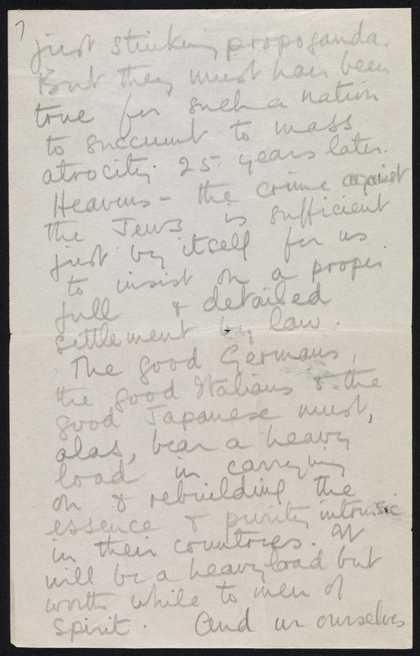 7
just stinking propoganda.
But they must have been
true for such a nation
to succumb to mass
atrocity 25 years later.
Heavens - the crime against
the Jews is sufficient
just by itself for us
to insist on a proper
full & detailed
settlement by law.
The good Germans,
the good Italians & the
good Japanese must,
alas, bear a heavy
load in carrying
on & rebuilding the
essence & purity intrinsic
in their countries. It
will be a heavy load but
worth while to men of
spirit. And in ourselves